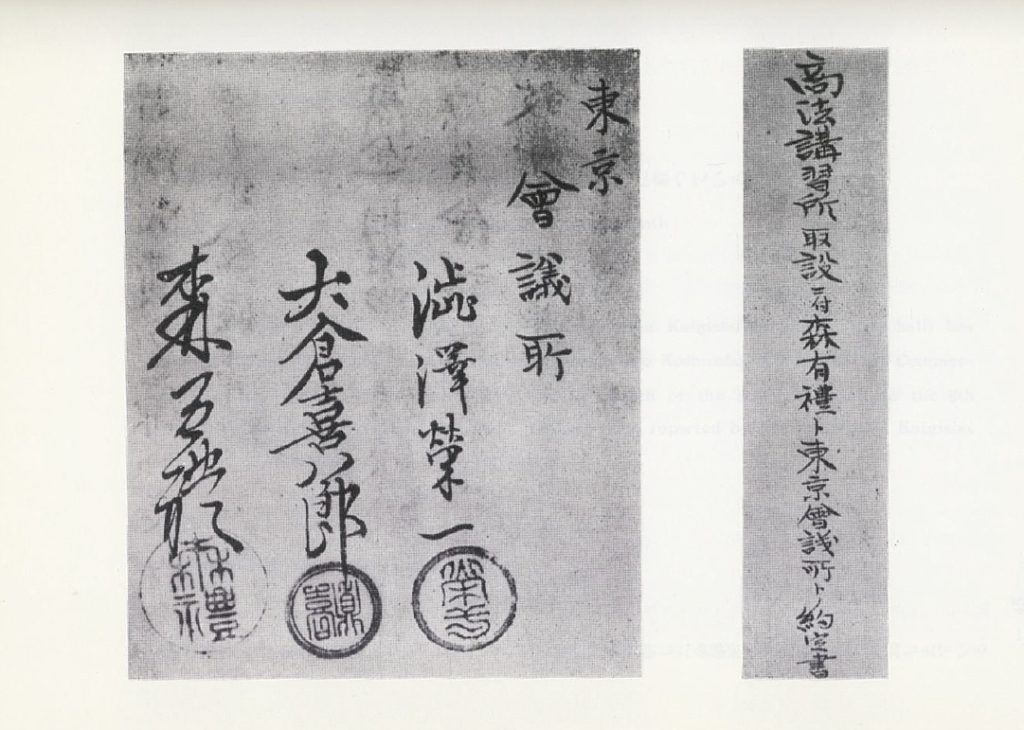 商法講習所取設ニ付森有禮ト東京會議所トノ約定書
東京
會議所
澁澤榮一
大倉喜八郎
森有禮